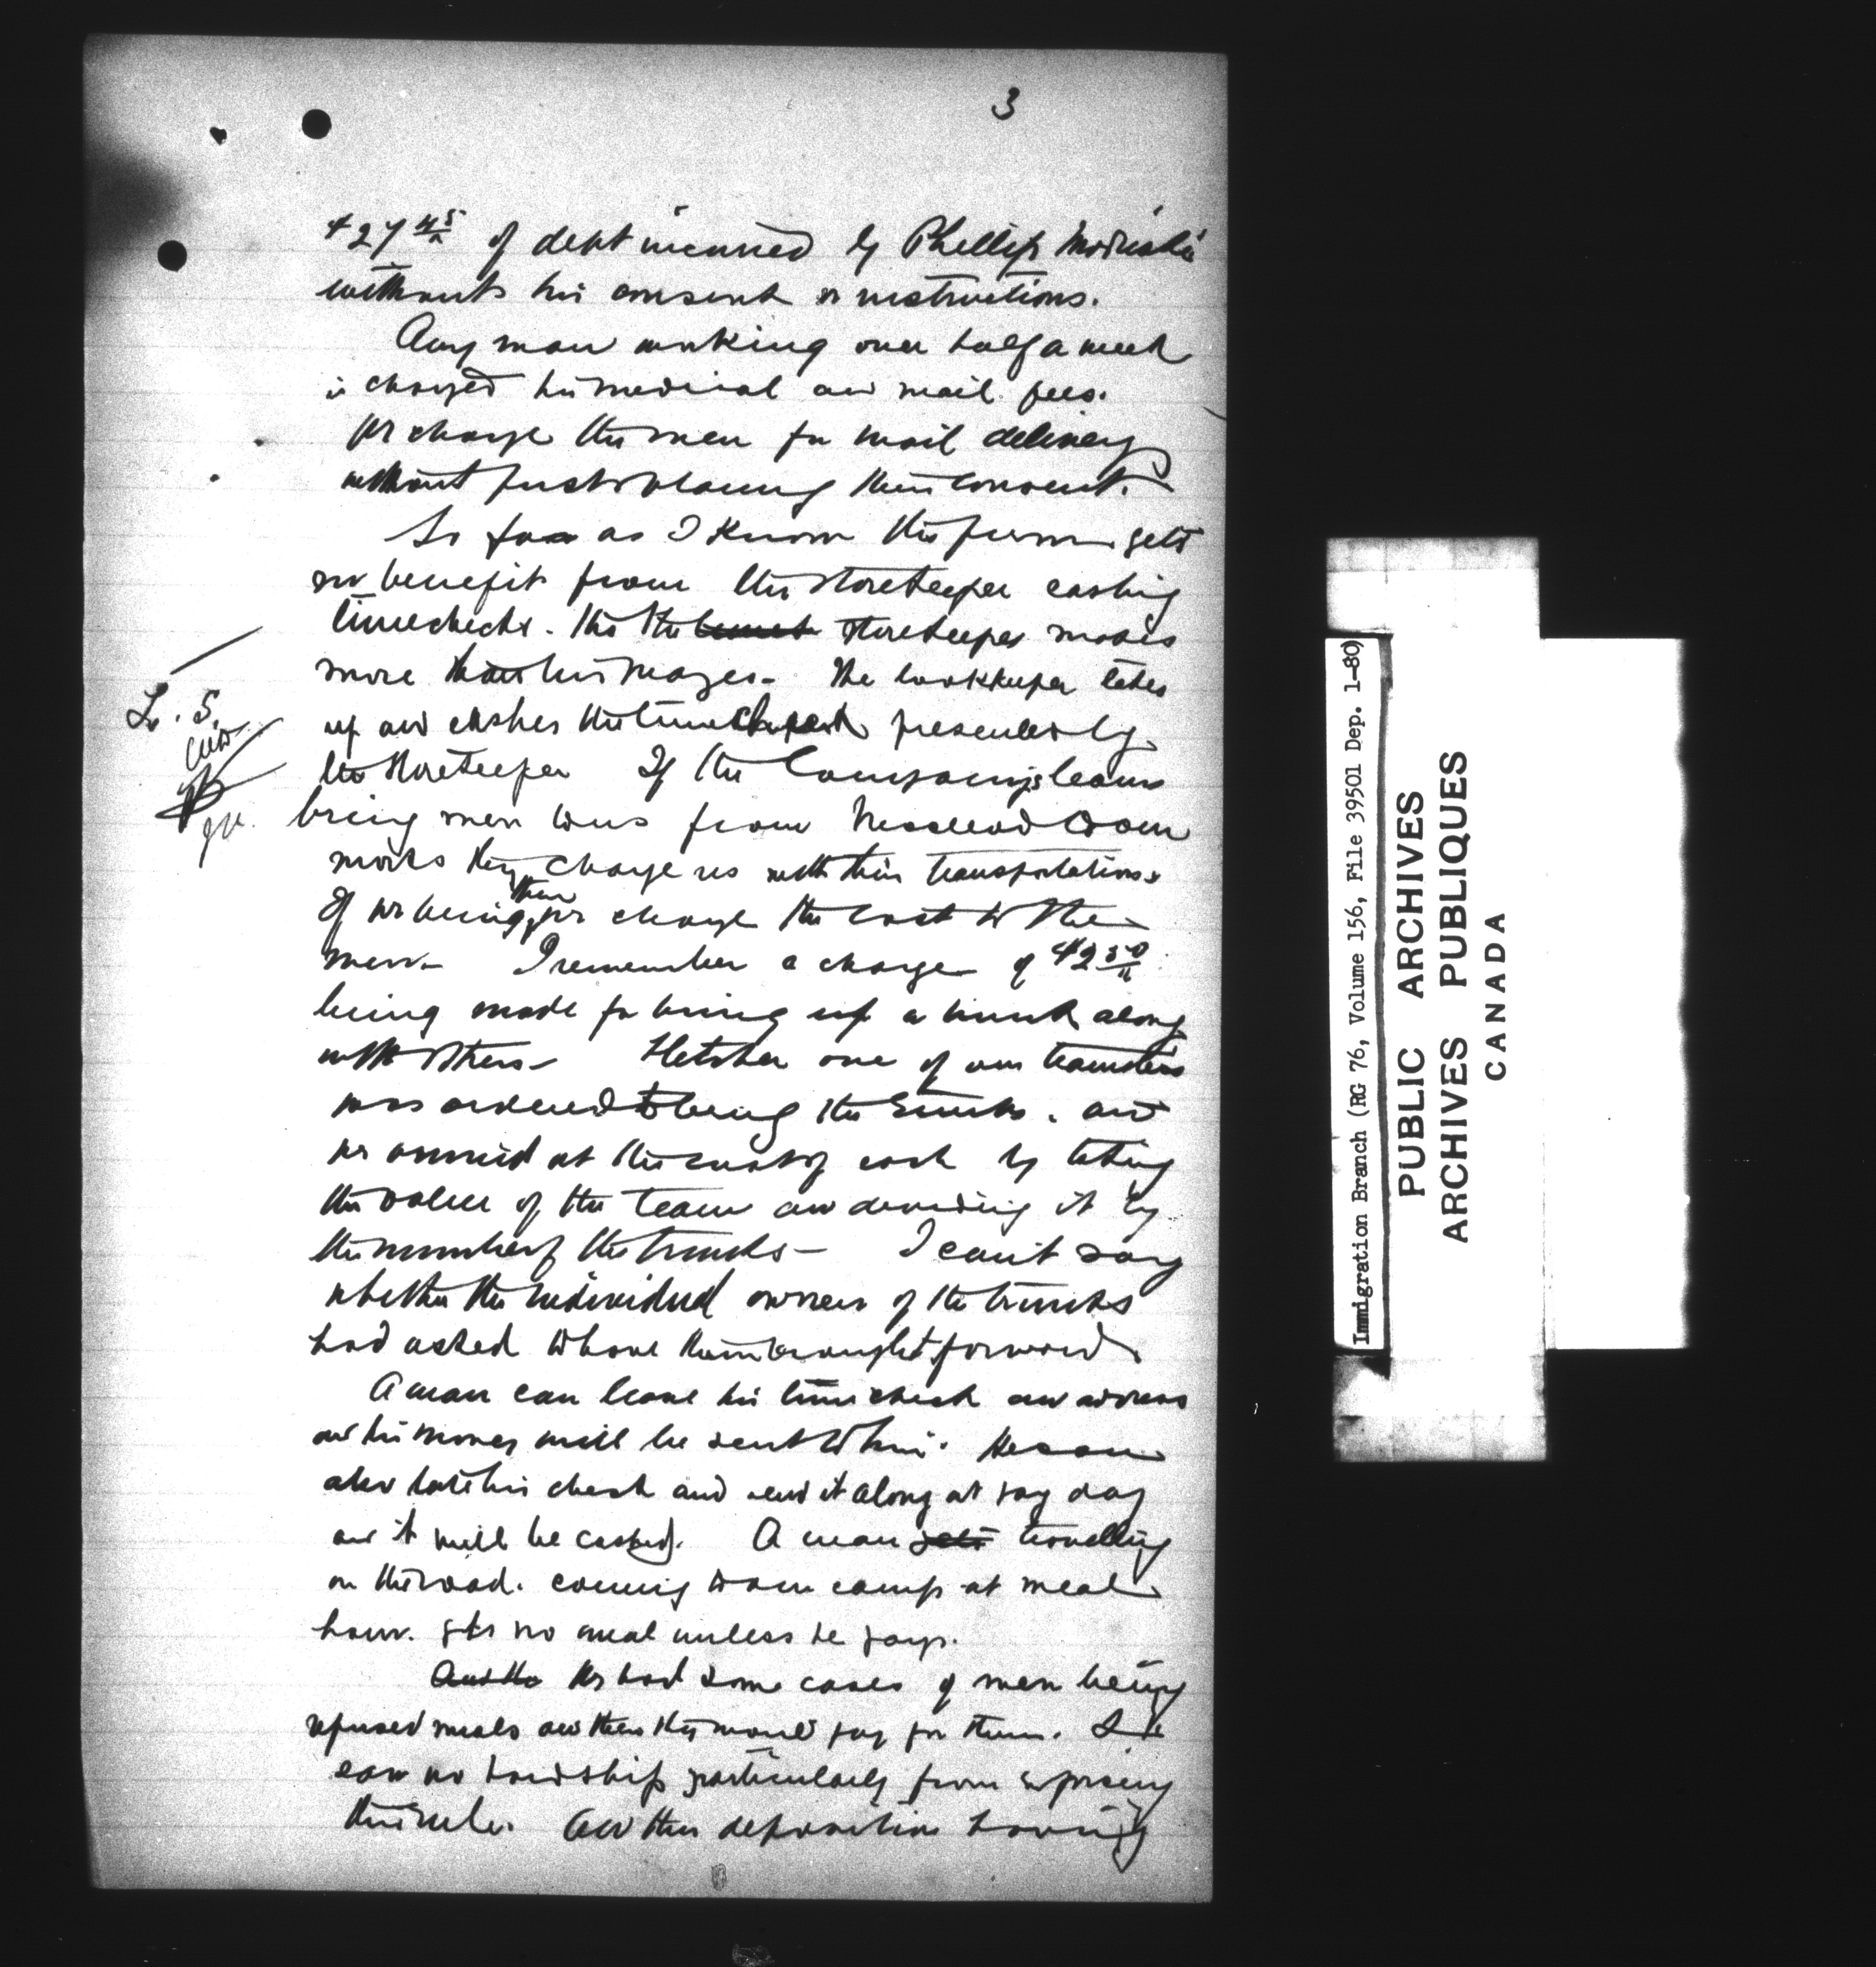 3
$27 45 of debt incurred by Phillip
without his consent or instructions.
Any man working over half a week
is charged his medical and mail fees.
We charge the men for mail delivery
without first obtaining their consent.
So far as I know the firm gets
no benefit from the storekeeper cashing
timechecks. The storekeeper makes
more than his wages. The bookkeeper takes
up and cashes the time checks presented by
the storekeeper If the Company's teams
bring men to us from Macleod to our
works they charge us with their transportation.
If we bring them we charge the cost to the
men. I remember a charge of $2 50
being made for bring up a trunk along
with others. Fletcher one of our teamsters
was ordered to bring the trunks. and
we arrived at the cost of each by taking
the value of the team and dividing it by
the number of the trunks - I can't say
whether the individual owners of the trunks
had asked to have them brought forward
A man can leave his time check and address
and his money will be sent to him. He can
also take his check and send it along at pay day
and it will be cashed. A man gets travelling
on the road. coming to our camp at meal
hour. gets no meal unless he pays.
We had some cases of men being
refused meals and then they would pay for them. I
saw no hardship particularly from enforcing
this rule. And this deposition having
L. S.
Immigration Branch (RG 76, Volume 156, File 39501 Dep. 1-80)
PUBLIC ARCHIVES
ARCHIVES PUBLIQUES
CANADA